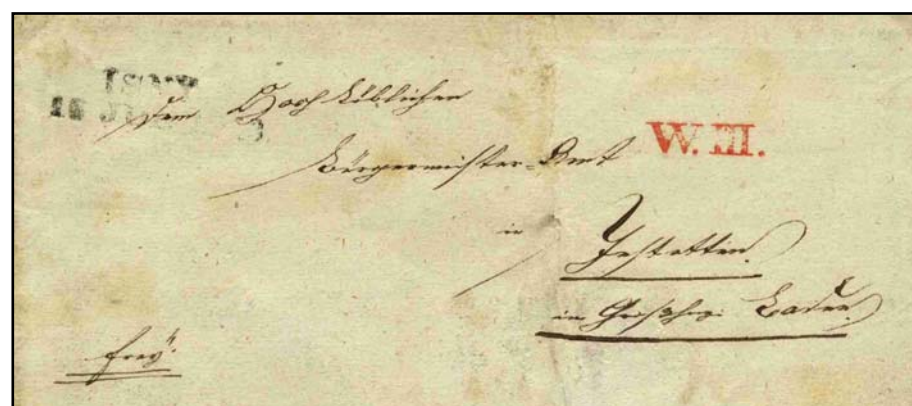 ISNY
Dem Hochlöblichen
Bürgermeister-Amt
W. III.
in
Jestetten.
im Großherz: Baden
frey.